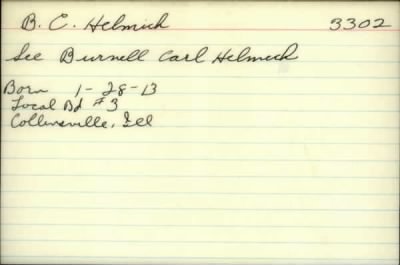 B. C. Helmich 3302
See Burnell Carl Helmich
Born 1-28-13
Local Bd #3
Collinsville, Ill